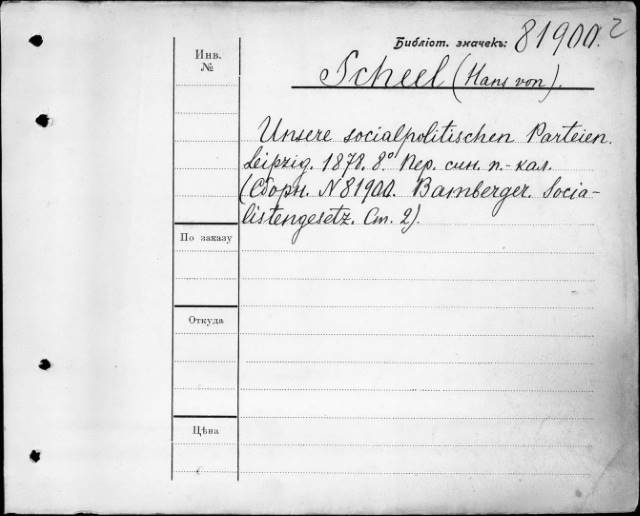 Библіот. значекъ: 81900. 2
Инв.
№
Scheel (Hans von).
Unsere socialpolitischen Parteien.
Leipzig. 1878. 8º Пер. син. п.-кал.
(Сборн. N 81900. Bamberger. Socia-
listengesetz. Ст. 2).
По заказу
Откуда
Цѣна